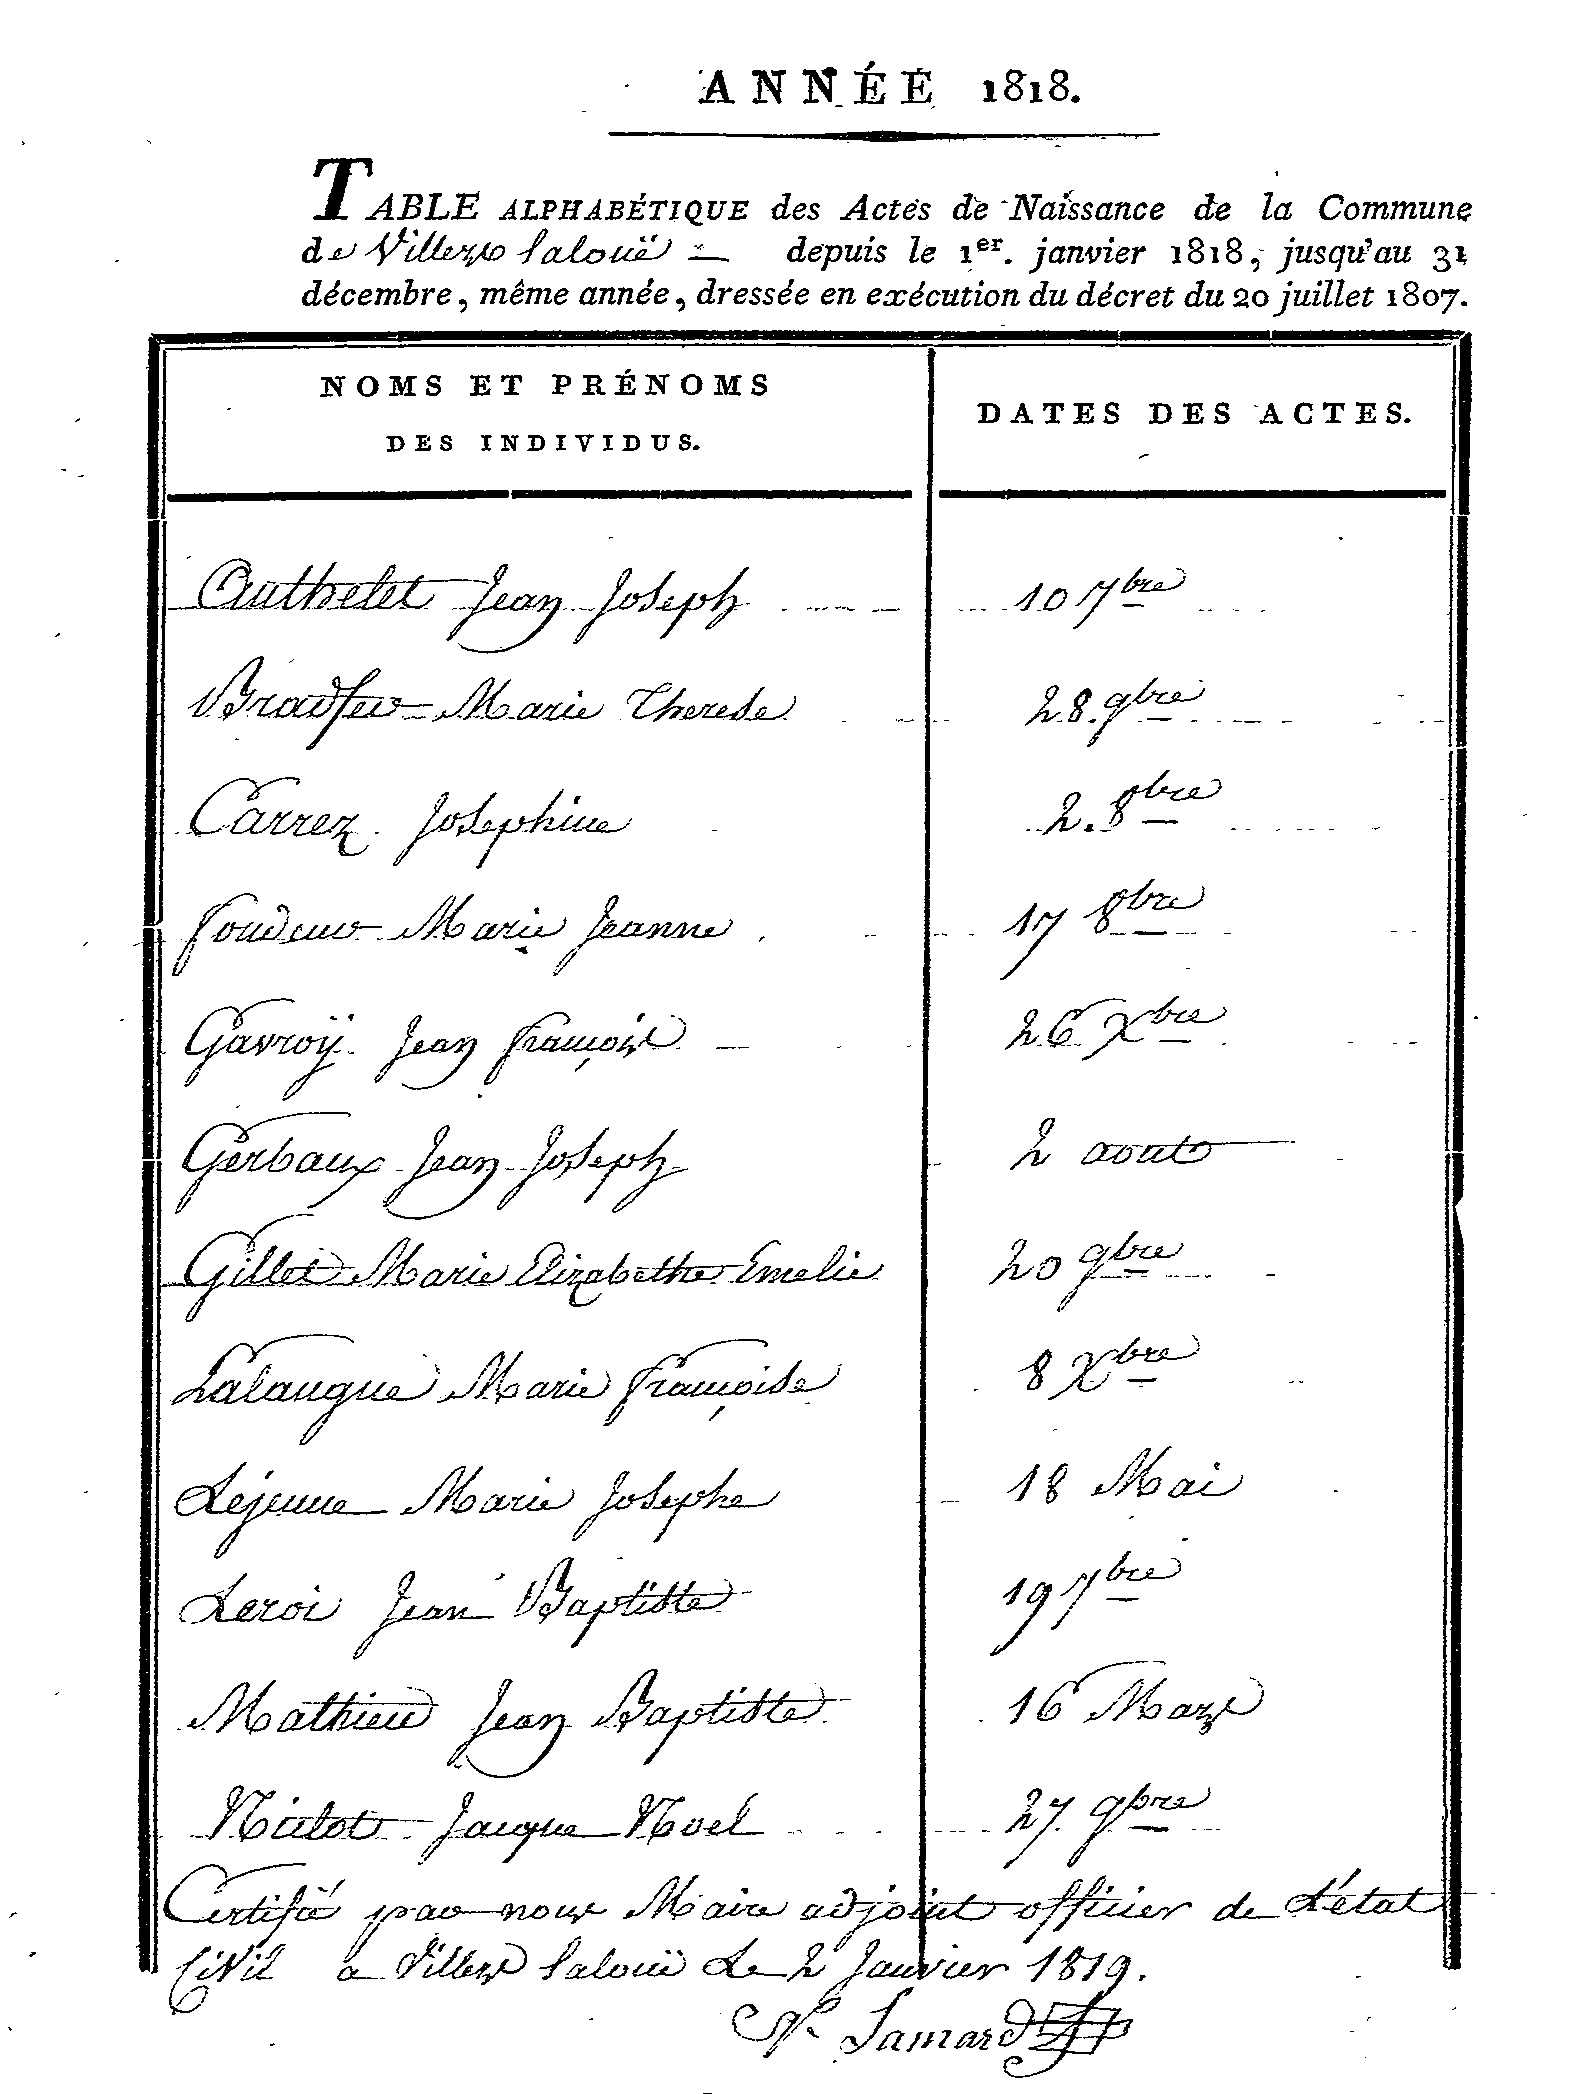 ANNÉE 1818.
TABLE ALPHABÉTIQUE des Actes de Naissance de la Commune
de Villers laloüe depuis le 1er. janvier 1818, jusqu'au 31
décembre, même année, dressée en exécution du décret du 20 juillet 1807.
NOMS ET PRÉNOMS
DES INDIVIDUS.
DATES DES ACTES.
Authelet Jean Joseph 10 7bre
Marie Therese 28 9bre
Carrez Josephine 2. 8bre
Marie Jeanne 17 8bre
Gavroÿ Jean françois 26 Xbre
Gerbaux Jean Joseph 2 aout
Gillet Marie Elizabethe Emelie 20 9bre
Lalangue Marie françoise 8 Xbre
Lejeune Marie Josephe 18 Mai
Leroi Jean Baptiste 19 7bre
Mathieu Jean Baptiste 16 Mars
Jacque Noel 27 9bre
Certifié par nous Maire adjoint officier de L'état
Civil a Villers laloüe Le 2 Janvier 1819.
Lamard